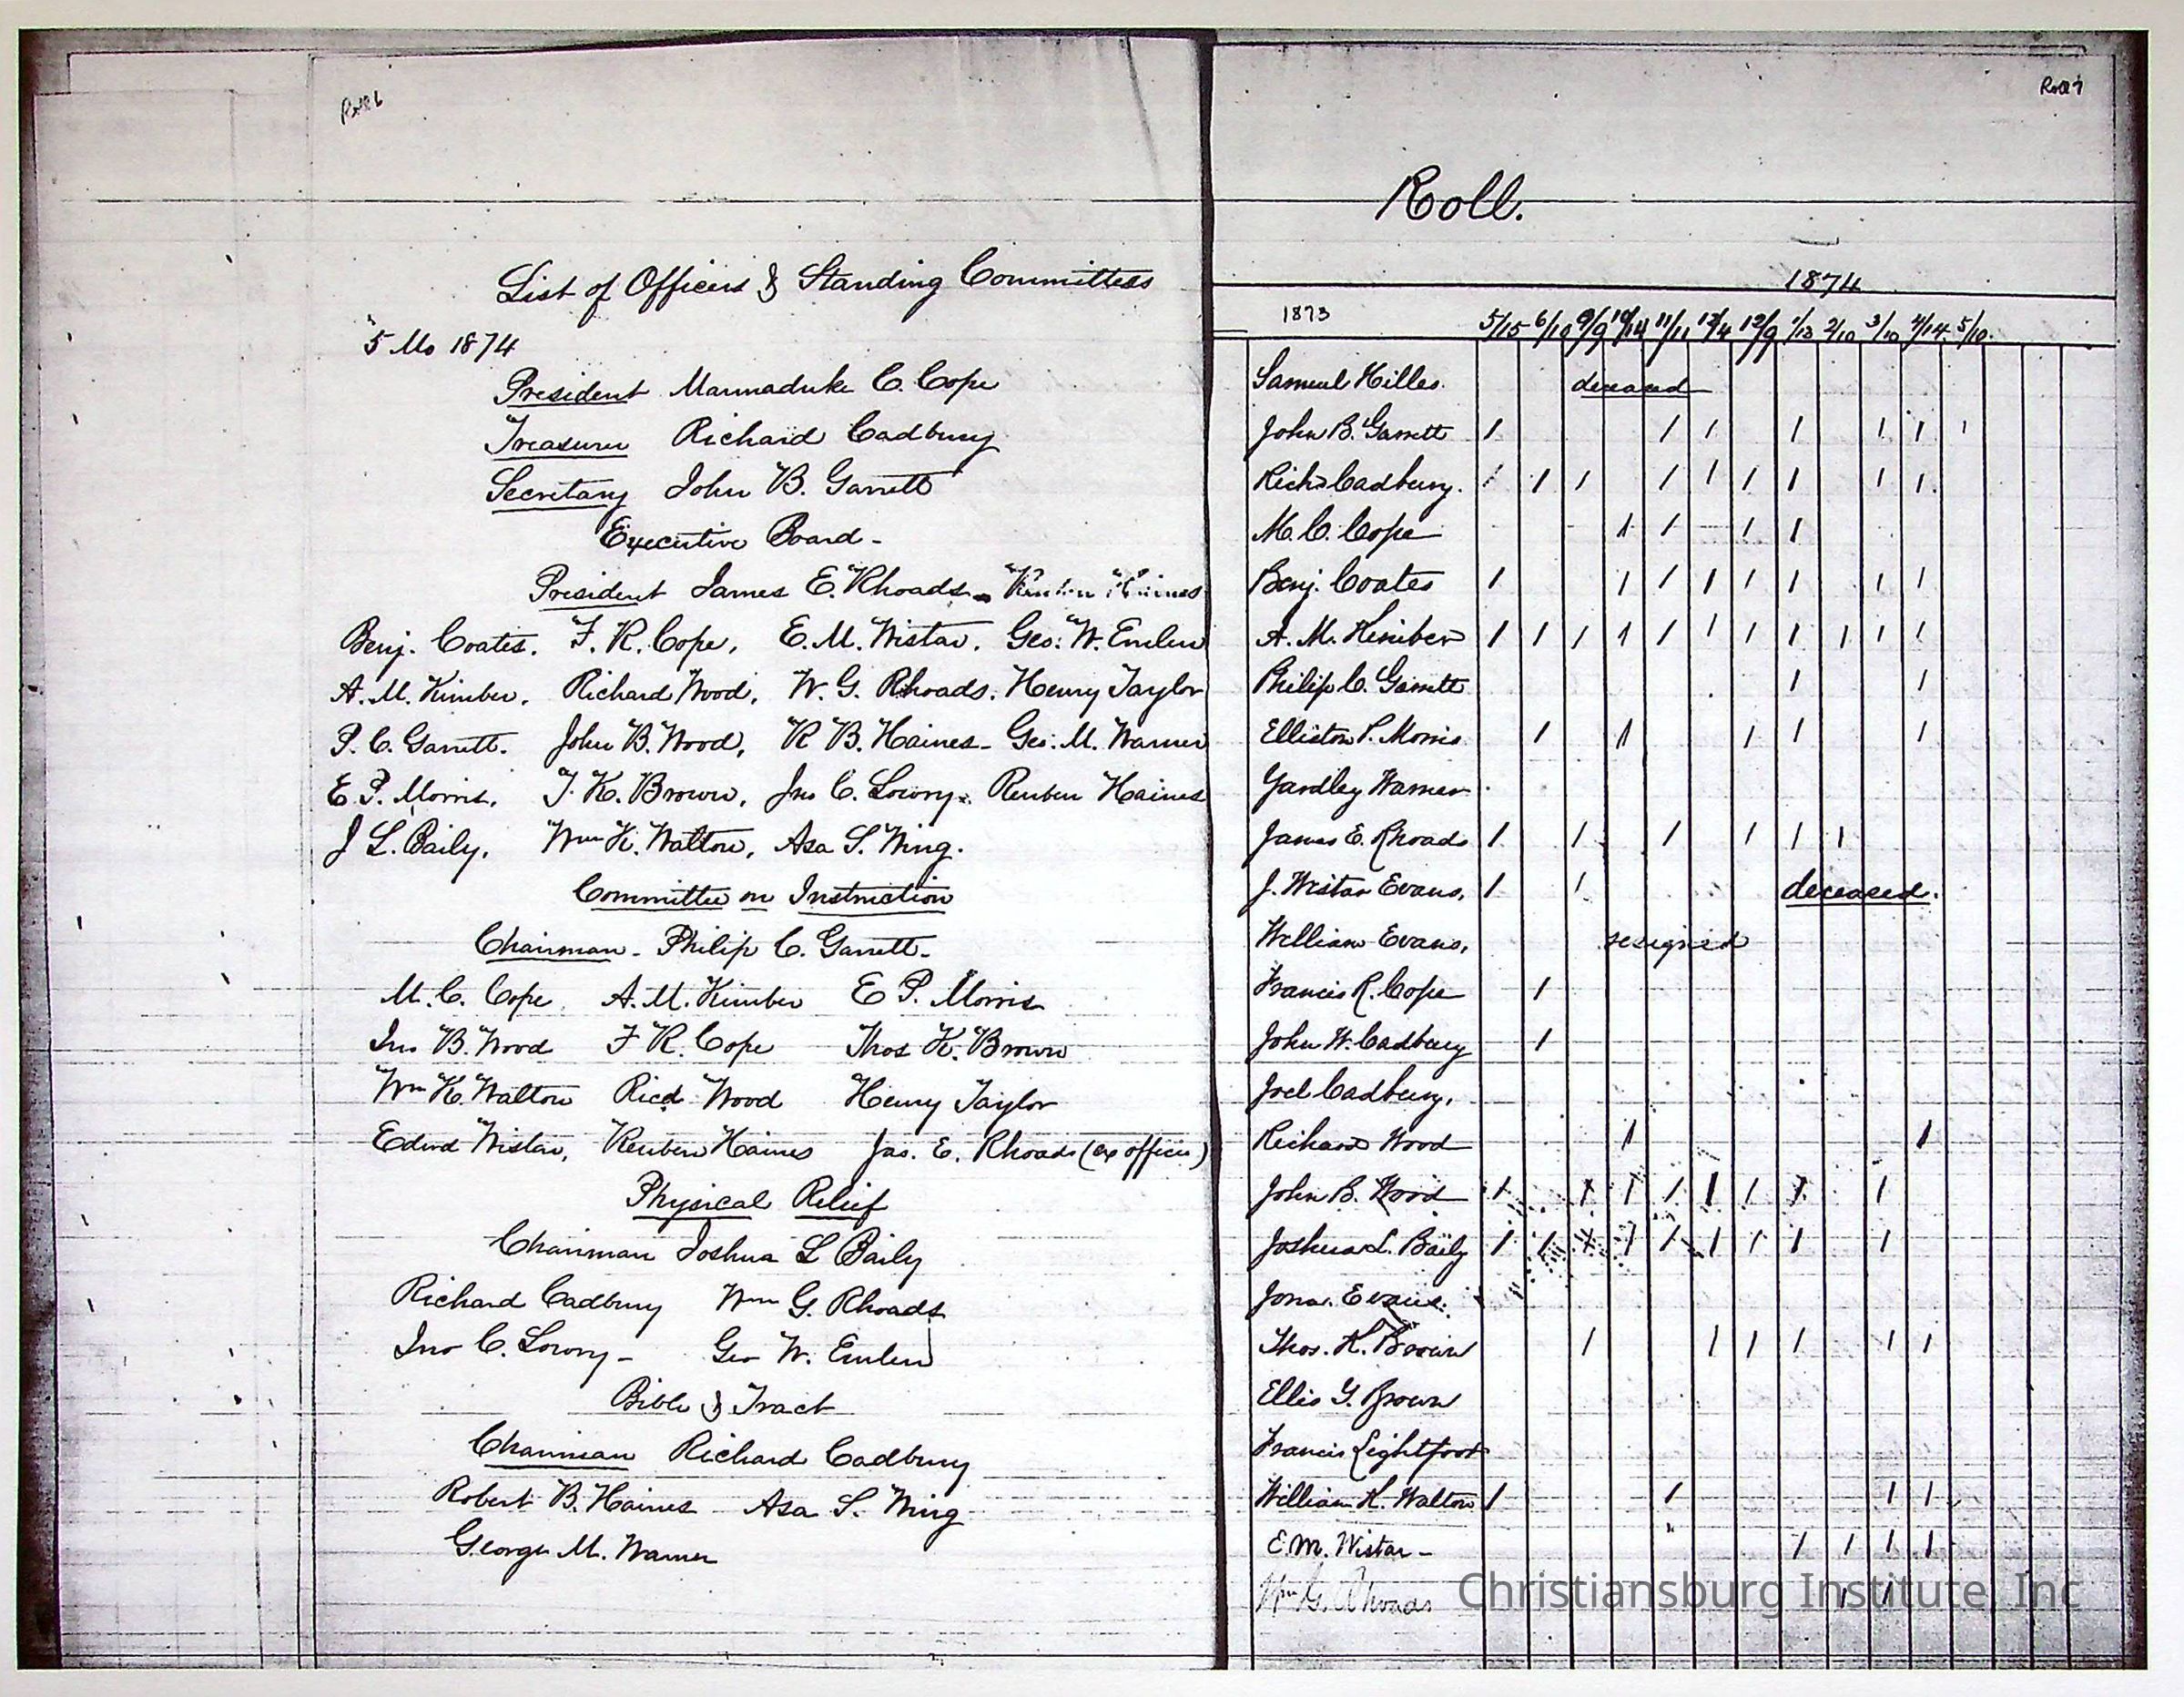 Roll 6
List of Officers & Standing Committees
5 Mo 1874
President Marmaduke C. Cope
Treasurer Richard Cadbury
Secretary John B. Garrett
Executive Board -
President James E. Rhoads - Reuben Haines
Benj. Coates. F. R. Cope, E. M. Wistar, Geo: W. Emlen
A. M. Kimber, Richard Wood, W. G. Rhoads. Henry Taylor
P. C. Garrett. John B. Wood, R B. Haines - Geo. M. Warner
E. P. Morris, T. K. Brown, Jno C. Lowry. Reuben Haines
J L. Baily, Wm K. Walton, Asa S. Wing.
Committee on Instruction
Chairman - Philip C. Garrett -
M. C. Cope, A. M. Kimber E P. Morris
Jno B. Wood F R. Cope Thos K. Brown
Wm K. Walton Ricd Wood Henry Taylor
Edwd Wistar, Reuben Haines Jas. E. Rhoads (ex officio)
Physical Relief
Chairman Joshua L Baily
Richard Cadbury Wm G. Rhoads
Jno C. Lowry - Geo W. Emlen
Bible & Tract
Chairman Richard Cadbury
Robert B. Haines Asa S. Wing
George M. Warner
Roll 7
Roll.
1874
1873 5/15 6/10 9/9 10/14 11/11 12/4 12/9 1/13 2/10 3/10 4/14 5/10.
Samuel Hilles. deceased
John B. Garrett / / / / / / /
Richd Cadbury. / / / / / / / / /
M. C. Cope / / / /
Benj. Coates / / / / / / / /
A. M. Kimber / / / / / / / / / / /
Philip C. Garrett / /
Elliston P. Morris / / / / /
Yardley Warner
James E. Rhoads / / / / / /
J. Wistar Evans, / / deceased.
William Evans, resigned
Francis R. Cope /
John W. Cadbury /
Joel Cadbury,
Richard Wood / /
John B. Wood / / / / / / / /
Joshua L. Baily / / / / / / / / /
Jona. Evans.
Thos. K. Brown / / / / / /
Ellis Y. Brown
Francis Lightfoot
William K. Walton / / / /
E. M. Wistar - / / / /
Wm G. Rhoads / /
Christiansburg Institute, Inc